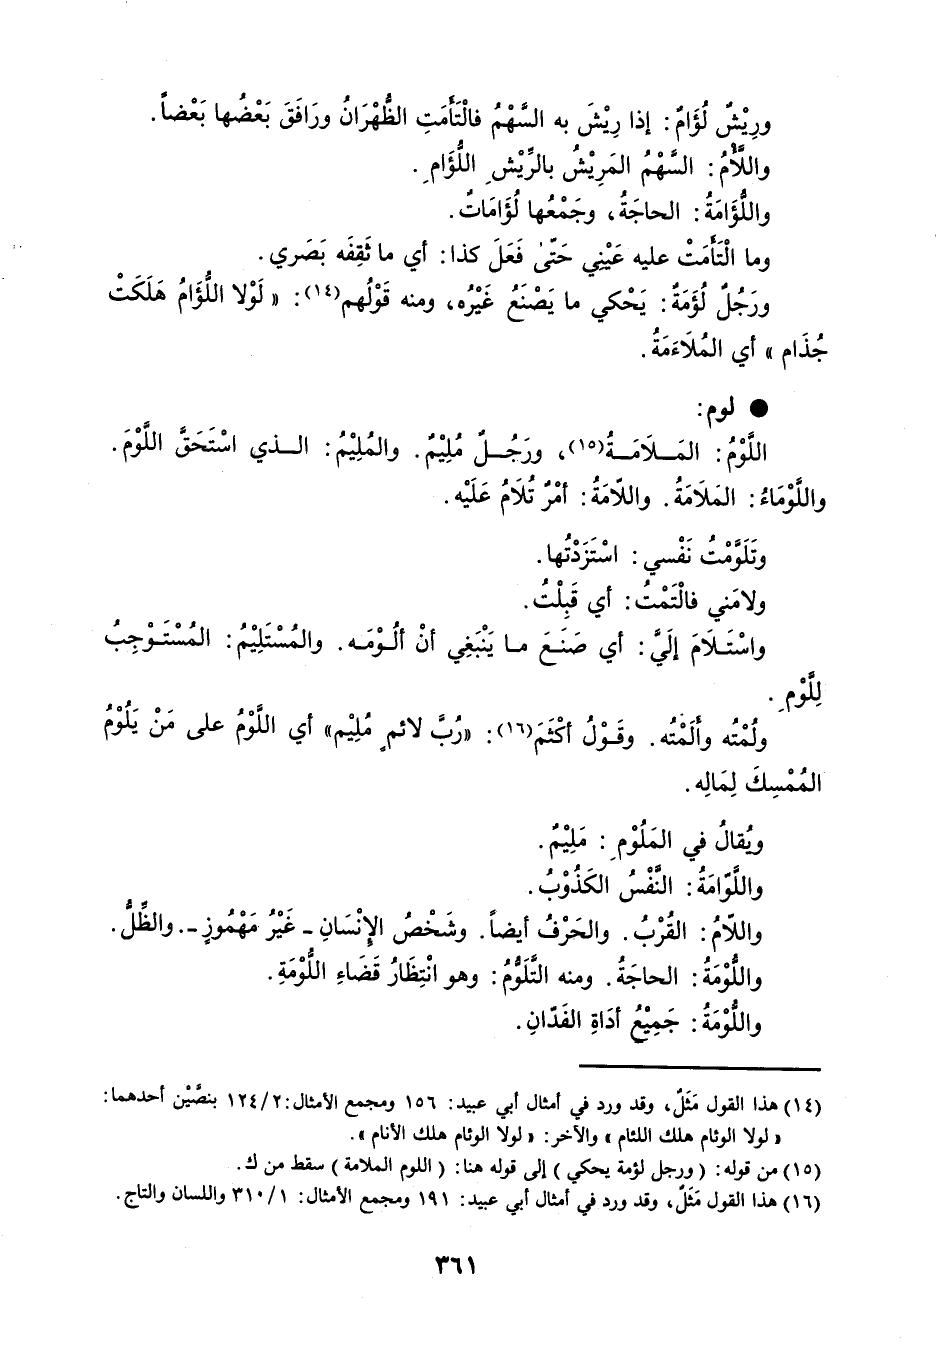 ورِيْشٌ لُؤَامٌ: إذا رِيْشَ به السَّهْمُ فالْتَأَمَتِ الظُّهْرَانُ ورَافَقَ بَعْضُها بَعْضاً.
واللَّأْمُ: السَّهْمُ المَرِيْشُ بالرِّيْشِ اللُّؤَامِ.
واللُّؤَامَةُ: الحاجَةُ، وجَمْعُها لُؤَامَاتٌ.
وما الْتَأَمَتْ عليه عَيْنِي حَتّىٰ فَعَلَ كذا: أي ما ثَقِفَه بَصَري.
ورَجُلٌ لُؤَمَةٌ: يَحْكي ما يَصْنَعُ غَيْرُه، ومنه قَوْلُهم(١٤): «لَوْلا اللُّؤَامُ هَلَكَتْ
جُذَام» أي المُلَاءَمَةُ.
● لوم:
اللَّوْمُ: المَـلَامَـةُ(١٥)، ورَجُـلٌ مُلِيْمٌ. والمُلِيْمُ: الـذي اسْتَحَقَّ اللَّوْمَ.
واللَّوْمَاءُ: المَلَامَةُ. واللّامَةُ: أمْرٌ تُلَامُ عَلَيْه.
وتَلَوَّمْتُ نَفْسي: اسْتَزَدْتُها.
ولامَني فالْتَمْتُ: أي قَبِلْتُ.
واسْتَـلَامَ إلَيَّ: أي صَنَـعَ مـا يَنْبَغِي أنْ ألُـوْمَـه. والمُسْتَلِيْمُ: المُسْتَـوْجِبُ
لِلَّوْمِ.
ولُمْتُه وأَلَمْتُه. وقَـوْلُ أكْثَمَ(١٦): «رُبَّ لائمٍ مُلِيْم» أي اللَّوْمُ على مَنْ يَلُوْمُ
المُمْسِكَ لِمَالِه.
ويُقالُ في المَلُوْمِ: مَلِيْمٌ.
واللَّوّامَةُ: النَّفْسُ الكَذُوْبُ.
واللّامُ: القُرْبُ. والحَرْفُ أيضاً. وشَخْصُ الإنْسَانِ - غَيْرُ مَهْمُوزٍ -. والظِّلُّ.
واللُّوْمَةُ: الحاجَةُ. ومنه التَّلَوُّمُ: وهو انْتِظَارُ قَضَاءِ اللُّوْمَةِ.
واللُّوْمَةُ: جَمِيْعُ أدَاةِ الفَدّانِ.
(١٤) هذا القول مَثَلٌ، وقد ورد في أمثال أبي عبيد: ١٥٦ ومجمع الأمثال: ١٢٤/٢ بنصَّيْن أحدهما:
«لولا الوئام هلك اللئام» والآخر: «لولا الوئام هلك الأنام».
(١٥) من قوله: (ورجل لؤمة يحكي) إلى قوله هنا: (اللوم الملامة) سقط من ك.
(١٦) هذا القول مَثَلٌ، وقد ورد في أمثال أبي عبيد: ١٩١ ومجمع الأمثال: ٣١٠/١ واللسان والتاج.
٣٦١